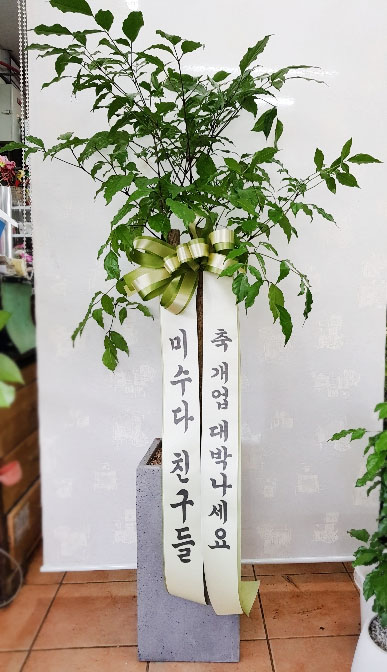 축 개업 대박나세요
미수다 친구들